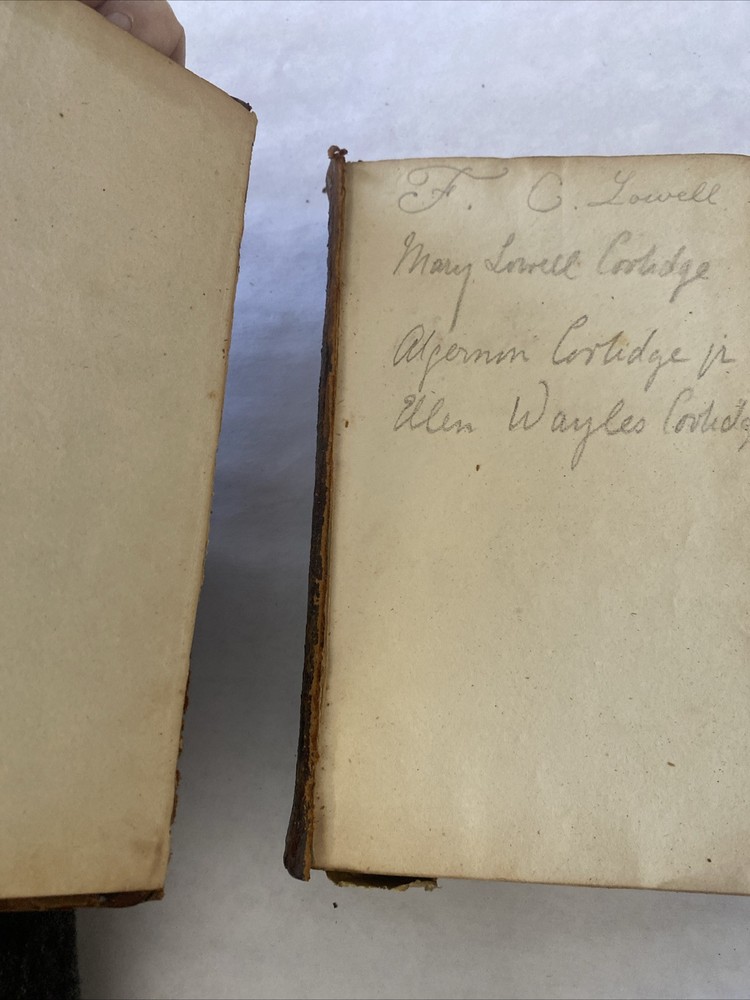 F. C. Lowell
Mary Lowell Coolidge
Algernon Coolidge jr
Ellen Wayles Coolidg